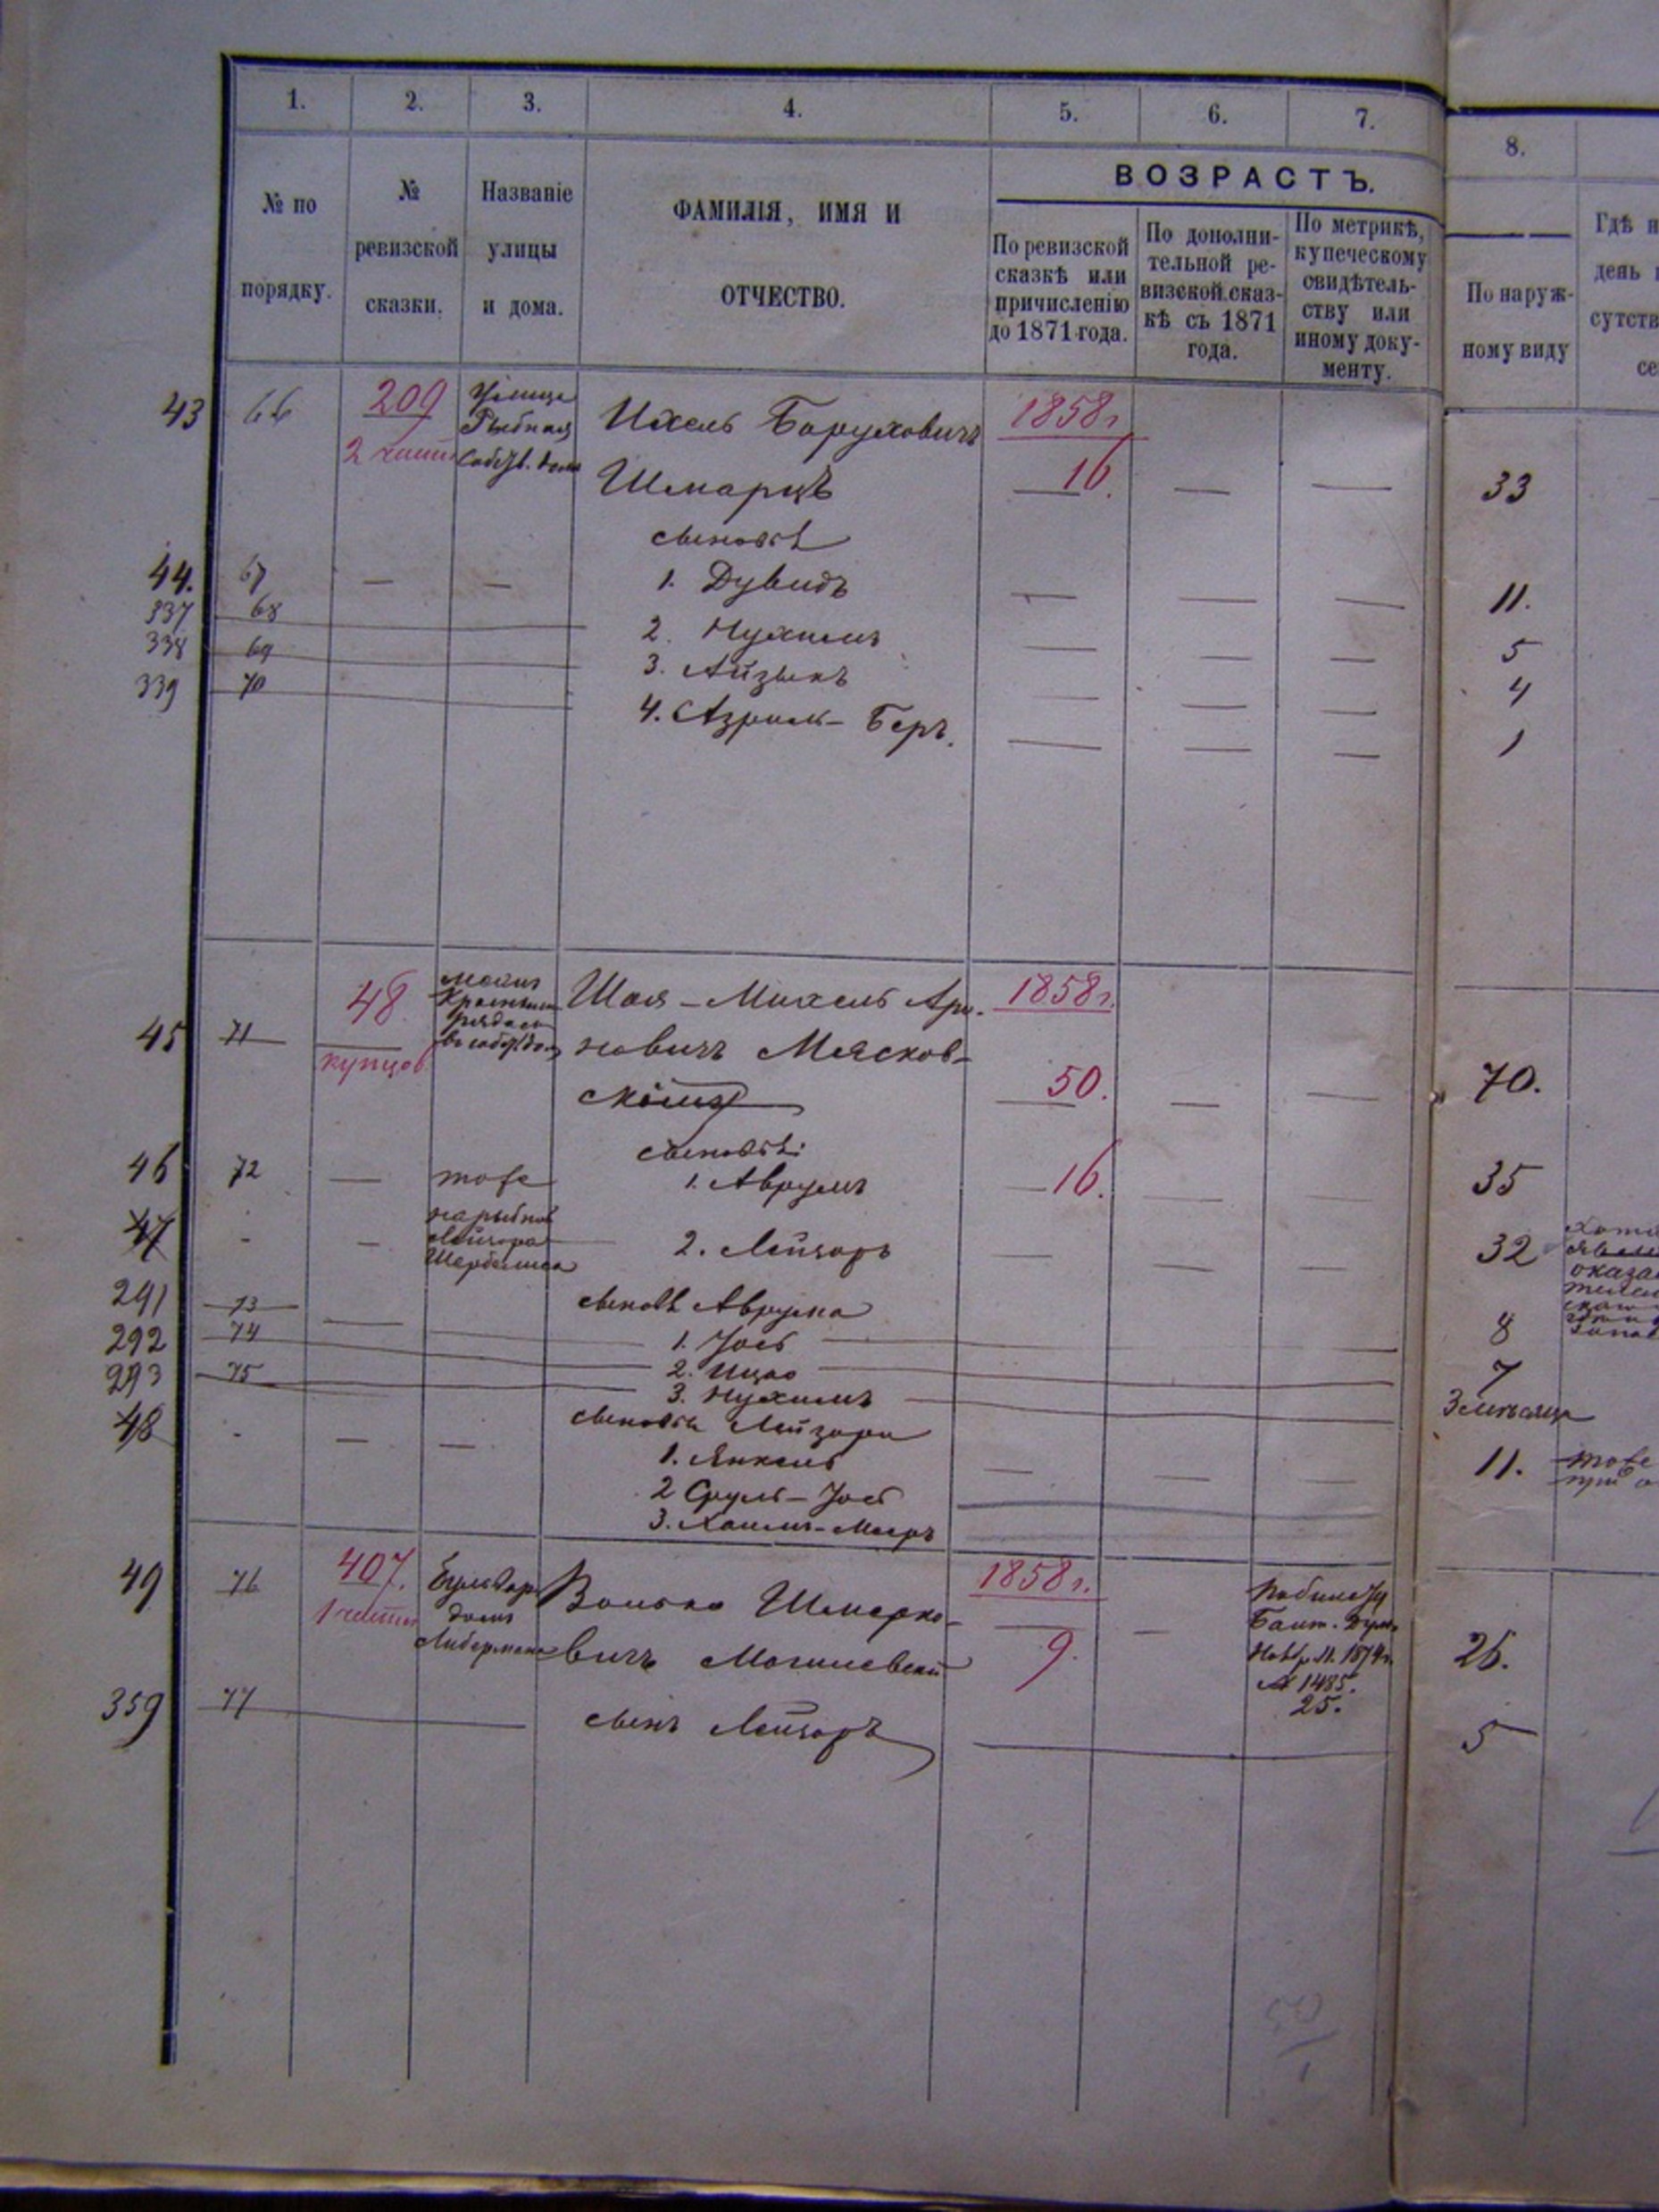 1. 2. 3. 4. 5. 6. 7. 8.
№ по порядку.
№ ревизской сказки.
Названіе улицы и дома.
ФАМИЛІЯ, ИМЯ И ОТЧЕСТВО.
ВОЗРАСТЪ.
По ревизской сказкѣ или причисленію до 1871 года.
По дополнительной ревизской сказкѣ съ 1871 года.
По метрикѣ, купеческому свидѣтельству или иному документу.
По наружному виду
Гдѣ
день
сутств
се
43 66 209 Улица Ихель Боруховичъ 1858 г.
2 Рыбная
Собств. домъ
Шмарцъ 16. — — 33
сыновья
44. 67 — — 1. Дувидъ — — — 11.
337 68 2. Нухимъ — — — 5
338 69 3. Айзыкъ — — — 4
339 70 4. Азриль-Беръ. — — — 1
48. Шая-Михель Аро- 1858 г.
45 71 купцов новичъ Мясков-
скій 50. — — 70.
рядъ
сыновья:
46 72 — тоже 1. Аврумъ 16. — — 35
47 - — 2. Лейзоръ — — — 32
сыновья Аврума
291 73 — 1. Іось 8
292 74 2. Ицко 7
293 75 3. Нухимъ 3 мѣсяца
сыновья Лейзора
48 - — — 1. Янкель — — — 11. тоже
2 Сруль-Іось
3. Хаимъ-Мееръ
49 76 407. Бульвар Волько Шмерко- 1858 г.
1 домъ
Либермана
вичъ Могилевскій 9. — 26.
Балт. Думы
1874 г.
№ 1485.
25.
359 77 сынъ Лейзоръ 5